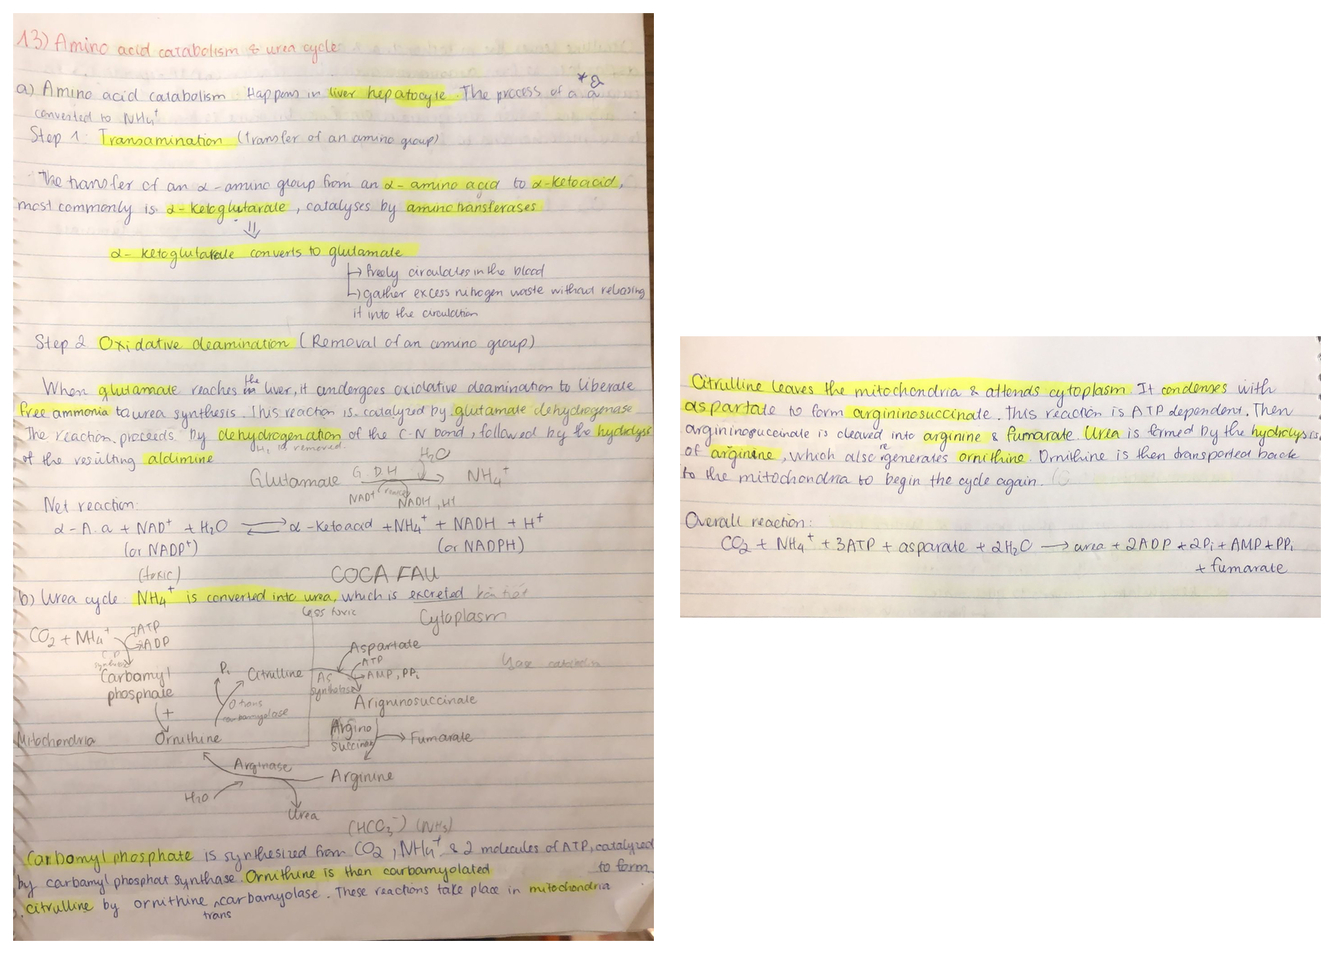 13) Amino acid catabolism & urea cycle
*a
a) Amino acid catabolism Happens in liver hepatocyte. The process of a.a
converted to NH4+
Step 1: Transamination (transfer of an amino group)
The transfer of an α-amino group from an α-amino acid to α-ketoacid,
most commonly is α-ketoglutarate, catalyses by aminotransferases
⇓
α-ketoglutarate converts to glutamate
↳ freely circulates in the blood
↳ gather excess nitrogen waste without releasing
it into the circulation
Step 2 Oxidative deamination (Removal of an amino group)
When glutamate reaches the liver, it undergoes oxidative deamination to liberate
free ammonia to urea synthesis. This reaction is catalyzed by glutamate dehydrogenase
The reaction proceeds by dehydrogenation of the C-N bond, followed by the hydrolysis
H2 is removed.
of the resulting aldimine
H2O
Glutamate G DH → NH4+
NAD+ NADH, H+
Net reaction:
α-A.a + NAD+ + H2O ⇌ α-ketoacid + NH4+ + NADH + H+
(or NADP+) (or NADPH)
(toxic) COCA FAU
b) Urea cycle NH4+ is converted into urea, which is excreted
less toxic
Cytoplasm
CO2 + NH4+
ATP
ADP
C.P synthase
Carbamyl
phosphate
+
Ornithine
Mitochondria
Pi
O trans
carbamyolase
Citrulline
Aspartate
ATP
AMP, PPi
AS
synthase
Arigninosuccinate
Argino
succinase
Fumarate
Arginine
Arginase
H2O
Urea
(HCO3-) (NH3)
Carbomyl phosphate is synthesized from CO2, NH4+ & 2 molecules of ATP, catalyzed
by carbamyl phosphat synthase. Ornithine is then carbamyolated to form
citrulline by ornithine trans carbamyolase. These reactions take place in mitochondria
Citrulline leaves the mitochondria & attends cytoplasm. It condenses with
aspartate to form argininosuccinate. This reaction is ATP dependent. Then
argininosuccinate is cleaved into arginine & fumarate. Urea is formed by the hydrolysis
of arginine, which also regenerates ornithine. Ornithine is then transported back
to the mitochondria to begin the cycle again.
Overall reaction:
CO2 + NH4+ + 3ATP + asparate + 2H2O → urea + 2ADP + 2Pi + AMP + PPi
+ fumarate